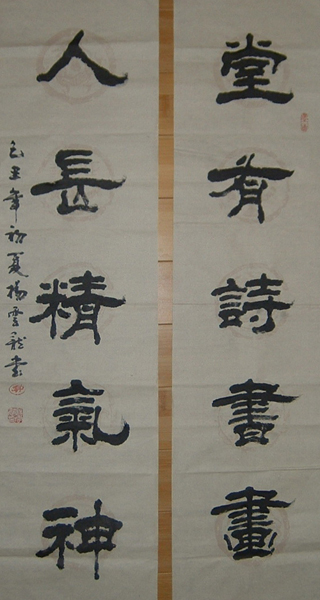 堂有詩書畫
人長精氣神
初夏楊雲龍書